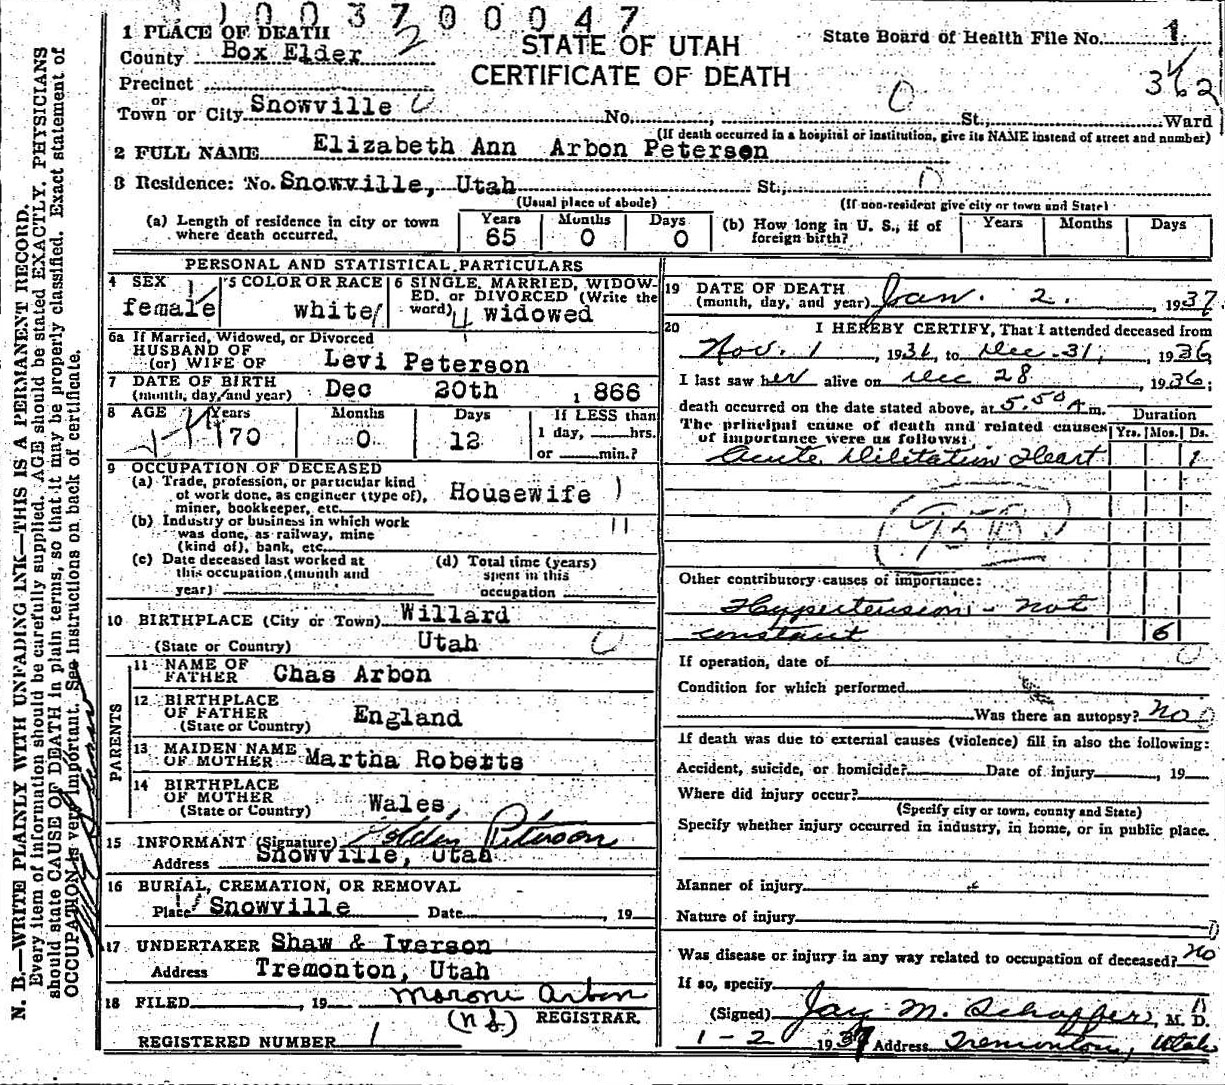 1003700047
1 PLACE OF DEATH
County Box Elder 2
STATE OF UTAH
CERTIFICATE OF DEATH
State Board of Health File No. 1
362
Precinct
or
Town or City Snowville 0 No. , 0 St., Ward
(If death occurred in a hospital or institution, give its NAME instead of street and number)
2 FULL NAME Elizabeth Ann Arbon Peterson
3 Residence: No. Snowville, Utah St., 0
(Usual place of abode) (If non-resident give city or town and State)
(a) Length of residence in city or town where death occurred. Years 65 Months 0 Days 0
(b) How long in U. S., if of foreign birth? Years Months Days
PERSONAL AND STATISTICAL PARTICULARS
4 SEX female
5 COLOR OR RACE white
6 SINGLE, MARRIED, WIDOWED, or DIVORCED (Write the word) 4 widowed
6a If Married, Widowed, or Divorced
HUSBAND OF
(or) WIFE OF Levi Peterson
7 DATE OF BIRTH
(month, day, and year) Dec 20th 1866
8 AGE Years 70 Months 0 Days 12
If LESS than
1 day, hrs.
or min.?
9 OCCUPATION OF DECEASED
(a) Trade, profession, or particular kind of work done, as engineer (type of), miner, bookkeeper, etc. Housewife
(b) Industry or business in which work was done, as railway, mine (kind of), bank, etc.
(c) Date deceased last worked at this occupation (month and year)
(d) Total time (years) spent in this occupation
10 BIRTHPLACE (City or Town) Willard
(State or Country) Utah 0
PARENTS
11 NAME OF FATHER Chas Arbon
12 BIRTHPLACE OF FATHER (State or Country) England
13 MAIDEN NAME OF MOTHER Martha Roberts
14 BIRTHPLACE OF MOTHER (State or Country) Wales
15 INFORMANT (Signature) Holden Peterson
Address Snowville, Utah
16 BURIAL, CREMATION, OR REMOVAL
Place Snowville Date , 19
17 UNDERTAKER Shaw & Iverson
Address Tremonton, Utah
18 FILED , 19 Moroni Arbon
REGISTRAR.
REGISTERED NUMBER 1
19 DATE OF DEATH
(month, day, and year) Jan. 2. 1937.
20 I HEREBY CERTIFY, That I attended deceased from
Nov. 1, 1936, to Dec. 31, 1936
I last saw her alive on Dec 28, 1936;
death occurred on the date stated above, at 5.50 A m.
The principal cause of death and related causes of importance were as follows:
Duration
Yrs. Mos. Ds.
Acute Dilitation Heart 1
95B
Other contributory causes of importance:
Hypertension - not
constant 6
If operation, date of 0
Condition for which performed
Was there an autopsy? No
If death was due to external causes (violence) fill in also the following:
Accident, suicide, or homicide? Date of injury , 19
Where did injury occur?
(Specify city or town, county and State)
Specify whether injury occurred in industry, in home, or in public place.
Manner of injury
Nature of injury
Was disease or injury in any way related to occupation of deceased? no
If so, specify
(Signed) Jay M. Schaffer, M. D.
1-2 1937 Address Tremonton, Utah
N. B.—WRITE PLAINLY WITH UNFADING INK—THIS IS A PERMANENT RECORD.
Every item of information should be carefully supplied. AGE should be stated EXACTLY. PHYSICIANS
should state CAUSE OF DEATH in plain terms, so that it may be properly classified. Exact statement of
OCCUPATION is very important. See instructions on back of certificate.